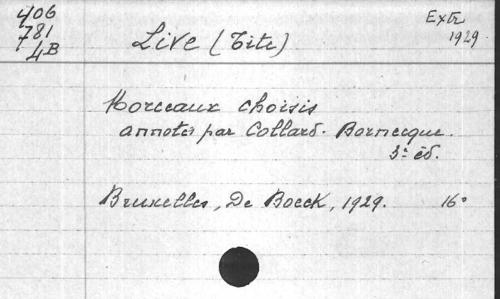 406
781
4B
Extr
1929
Live (Tite)
Morceaux choisis
annotés par Collard. Bornecque.
3e éd.
Bruxelles, De Boeck, 1929. 16°